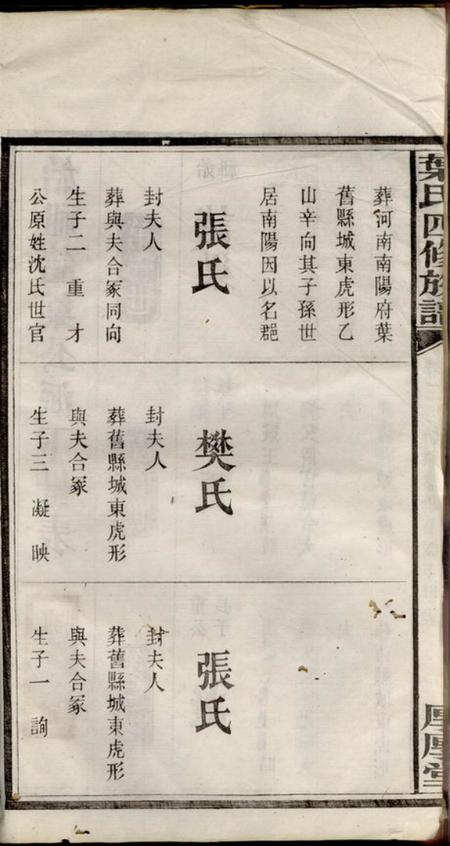 葉氏四修族譜
葬河南南陽府葉
舊縣城東虎形乙
山辛向其子孫世
居南陽因以名郡
張氏
封夫人
葬與夫合冢同向
生子二 重 才
公原姓沈氏世官
樊氏
封夫人
葬舊縣城東虎形
與夫合冢
生子三 凝 映
張氏
封夫人
葬舊縣城東虎形
與夫合冢
生子一 詢